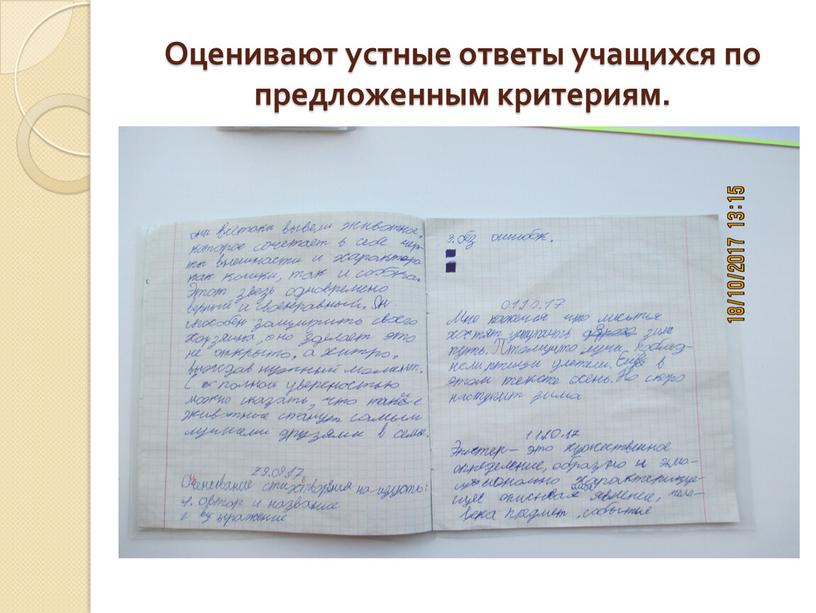 Оценивают устные ответы учащихся по
предложенным критериям.
18/10/2017 13:15
они востоки вывели животное,
которое сочетает в себе чер-
ты внешности и характера
как кошки, так и собаки.
Этот зверь одновременно
верный и своенравный. Он
способен защитить своего
хозяина, но сделает это
не открыто, а хитро,
выждав нужный момент.
С полной увереностью
можно сказать, что такое
животное станут самым
лучшими друзями в семье.
29.09.17
Оценивание стихотворения на-изусть:
1. автор и название
2. выражение
3. без ошибок.
01.10.17
Мне кажется что листья
хотят уступить зиме
путь. Птом улетели. Ещё в
этом тексте осень. Но скоро
наступит зима
11.10.17
Эпитер - это художественное
определение, образно и эмо-
ционально характеризую-
щее описывая явление, чело-
века предмет, событие